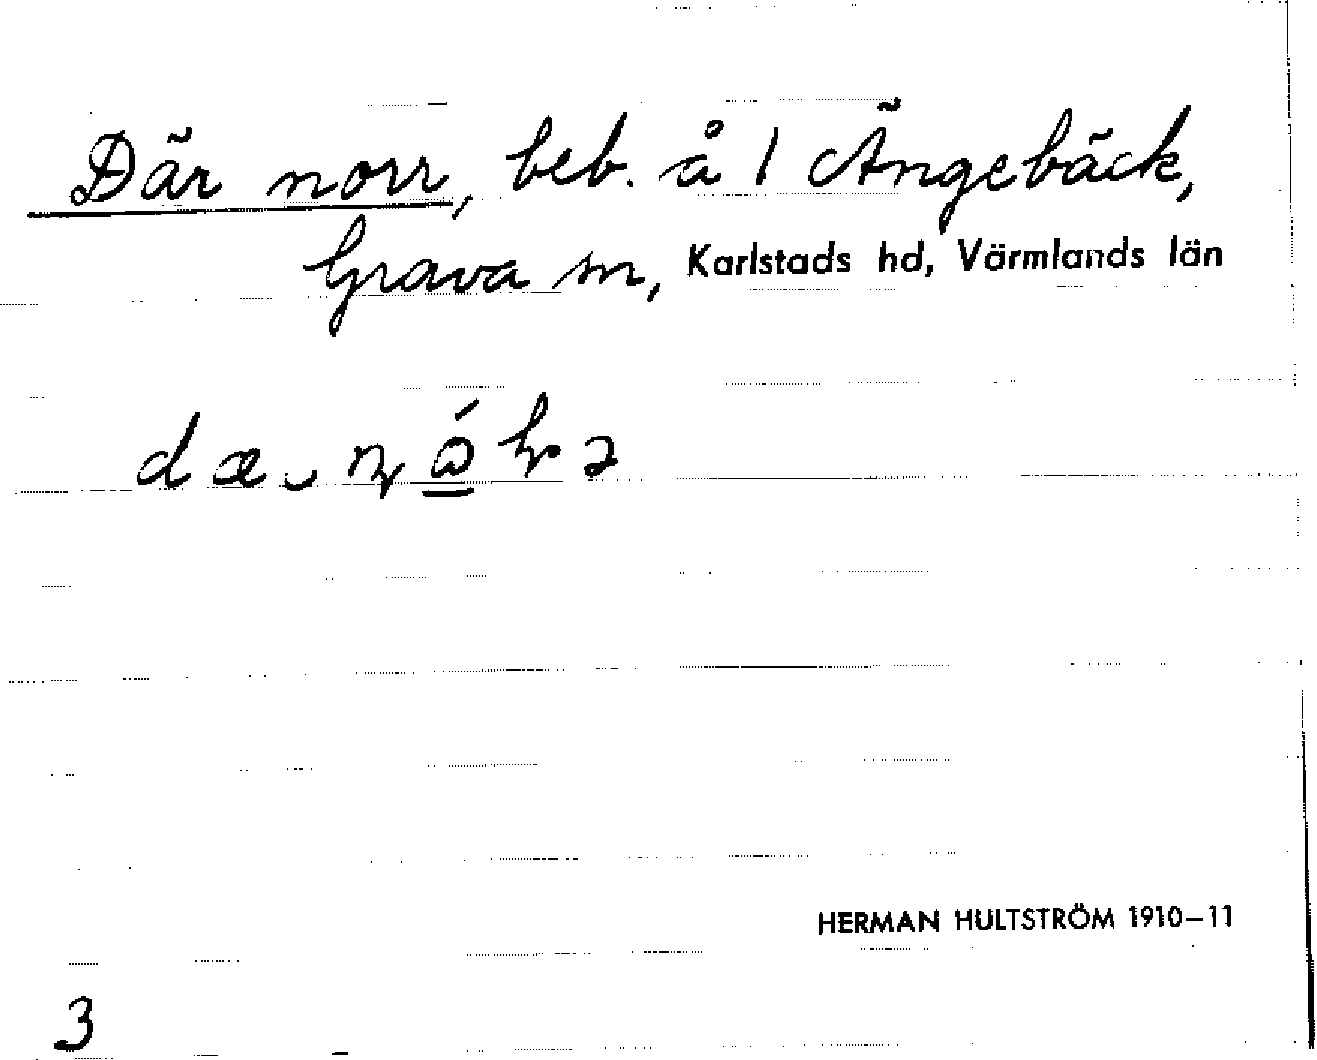 Där norr, beb. å 1 Ängebäck,
Grava sn, Karlstads hd, Värmlands län
HERMAN HULTSTRÖM 1910–11
3